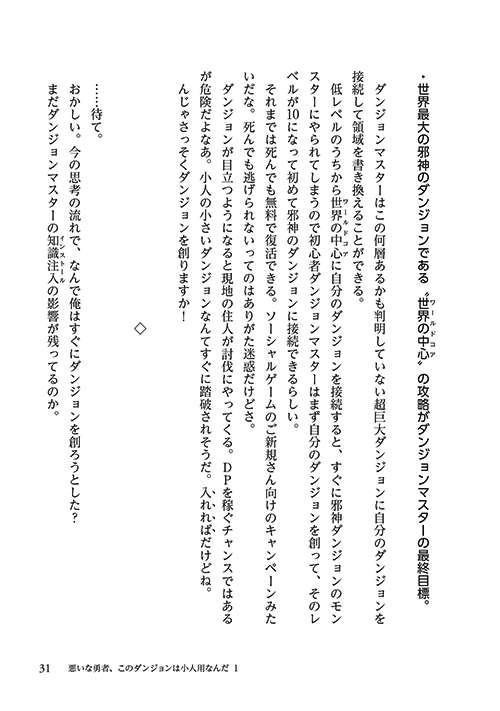 ・世界最大の邪神のダンジョンである〝世界の中心〟の攻略がダンジョンマスターの最終目標。
ワールドコア
ダンジョンマスターはこの何層あるかも判明していない超巨大ダンジョンに自分のダンジョンを
接続して領域を書き換えることができる。
低レベルのうちから世界の中心に自分のダンジョンを接続すると、すぐに邪神ダンジョンのモン
ワールドコア
スターにやられてしまうので初心者ダンジョンマスターはまず自分のダンジョンを創って、そのレ
ベルが10になって初めて邪神のダンジョンに接続できるらしい。
それまでは死んでも無料で復活できる。ソーシャルゲームのご新規さん向けのキャンペーンみた
いだな。死んでも逃げられないってのはありがた迷惑だけどさ。
ダンジョンが目立つようになると現地の住人が討伐にやってくる。DPを稼ぐチャンスではある
が危険だよなあ。小人の小さいダンジョンなんてすぐに踏破されそうだ。入れればだけどね。
んじゃさっそくダンジョンを創りますか！
◇
……待て。
おかしい。今の思考の流れで、なんで俺はすぐにダンジョンを創ろうとした？
まだダンジョンマスターの知識注入の影響が残ってるのか。
インストール
31 悪いな勇者、このダンジョンは小人用なんだ 1